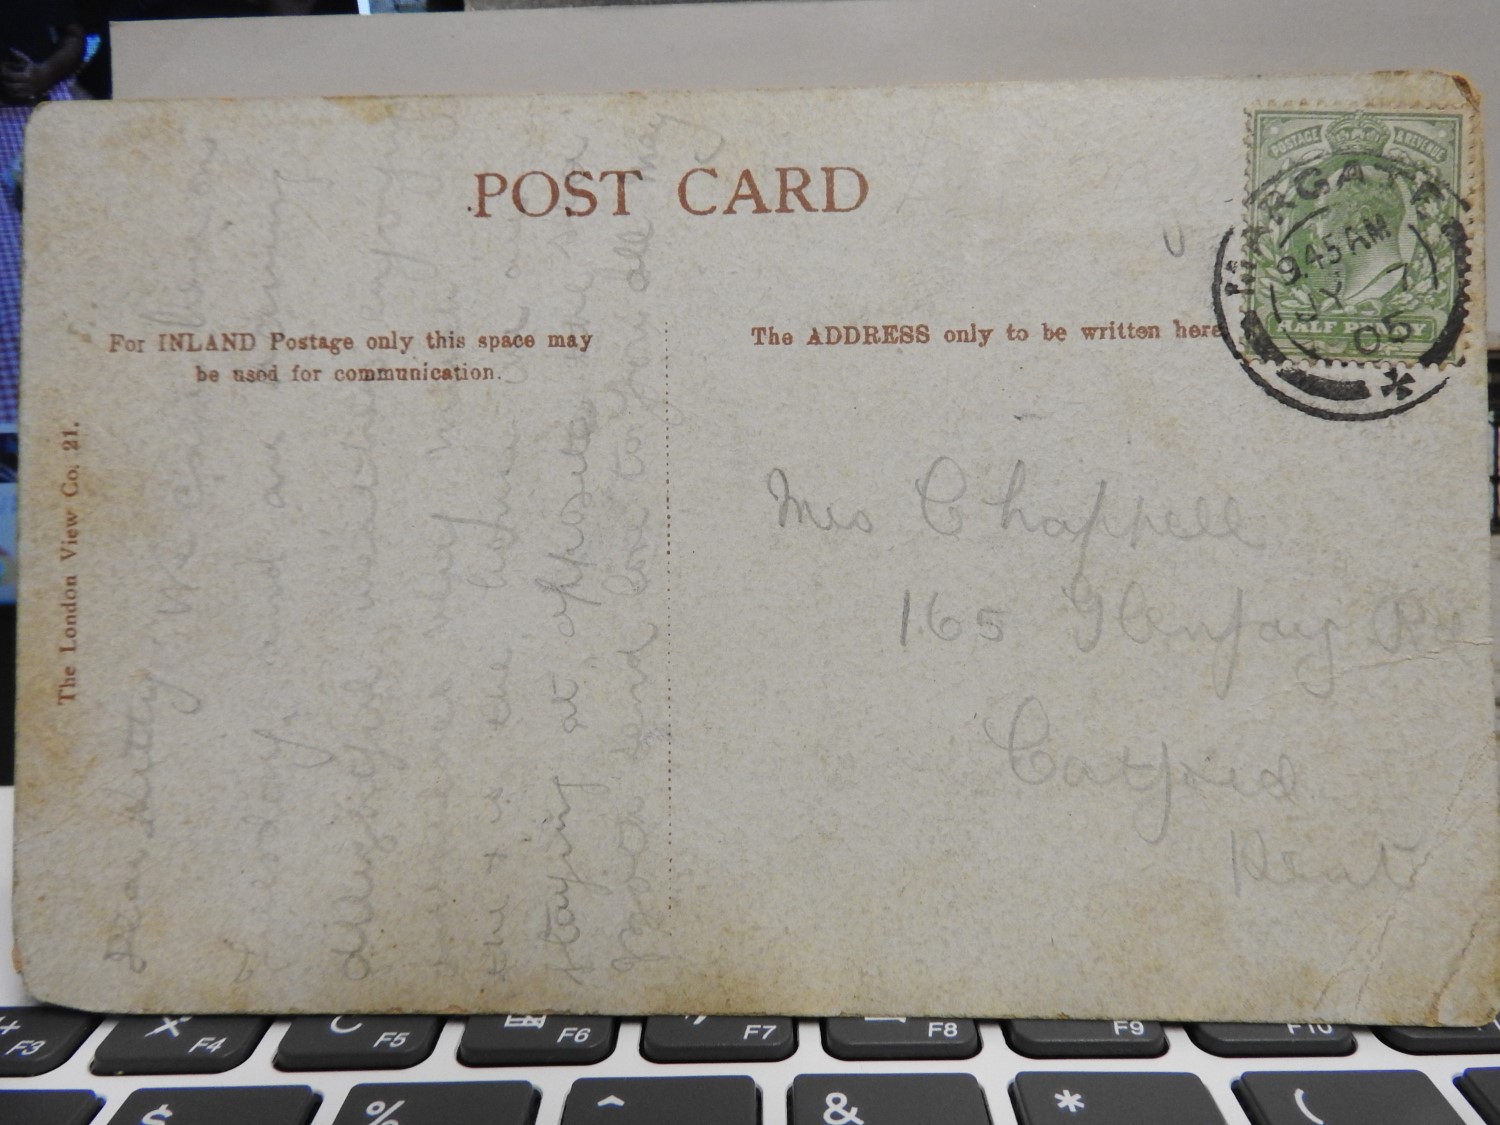 POST CARD
For INLAND Postage only this space may
be used for communication.
The ADDRESS only to be written here
The London View Co. 21.
POSTAGE & REVENUE
HALF PENNY
MARGATE
9.45 AM
JY 7
05
Mrs Chappell
165 Glenfarg Rd
Catford
Kent
Dear Kitty We came down on
and are having
delightful weather enjoying
the
the + is the house we are
staying at, opposite the sea
Good love to you all
F3
F4
F5
F6
F7
F8
F9
F10
$
%
^
&
*
(